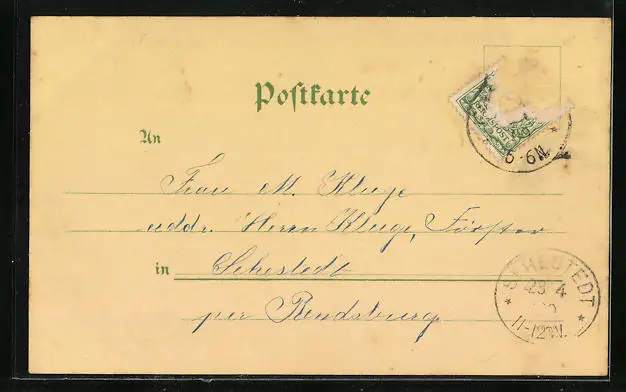 Postkarte
An
Frau M. Kluge
addr. Herrn Kluge, Förster
in Sehestedt
per Rendsburg
5-6N.
SEHESTEDT
23 4
11-12N.